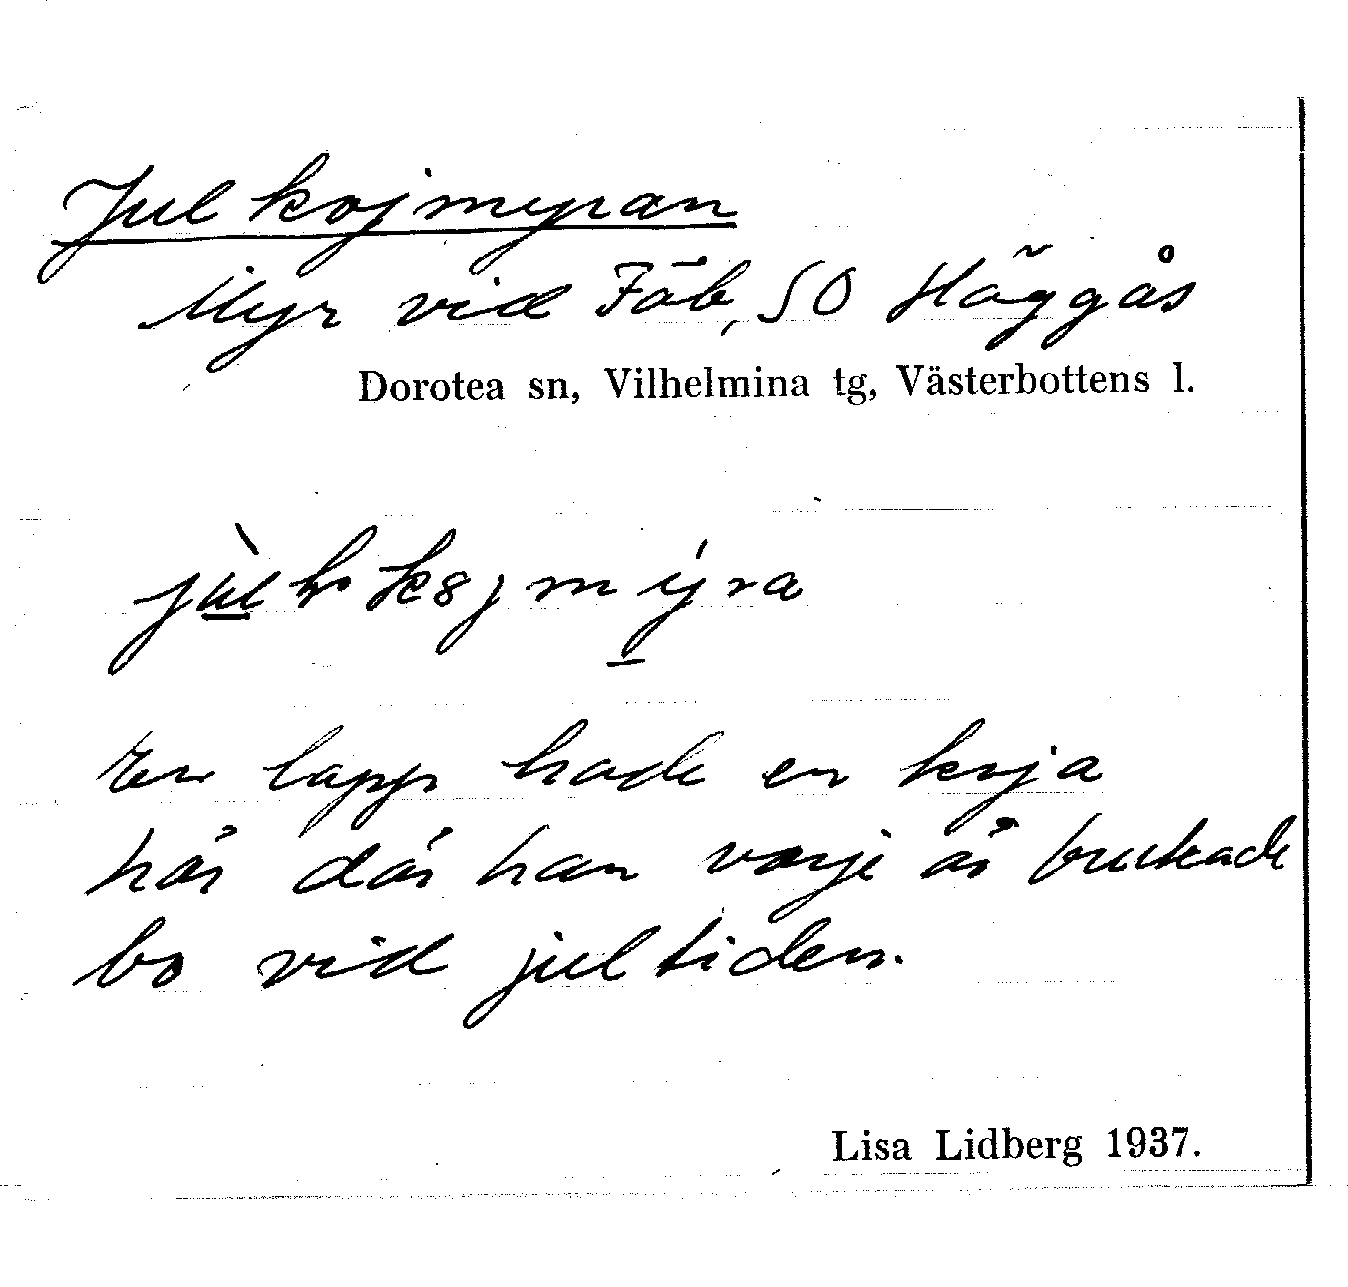 Julkojmyran
Myr vid Fäb, SO Häggås
Dorotea sn, Vilhelmina tg, Västerbottens l.
En lapp hade en koja
här där han varje år brukade
bo vid jultiden.
Lisa Lidberg 1937.